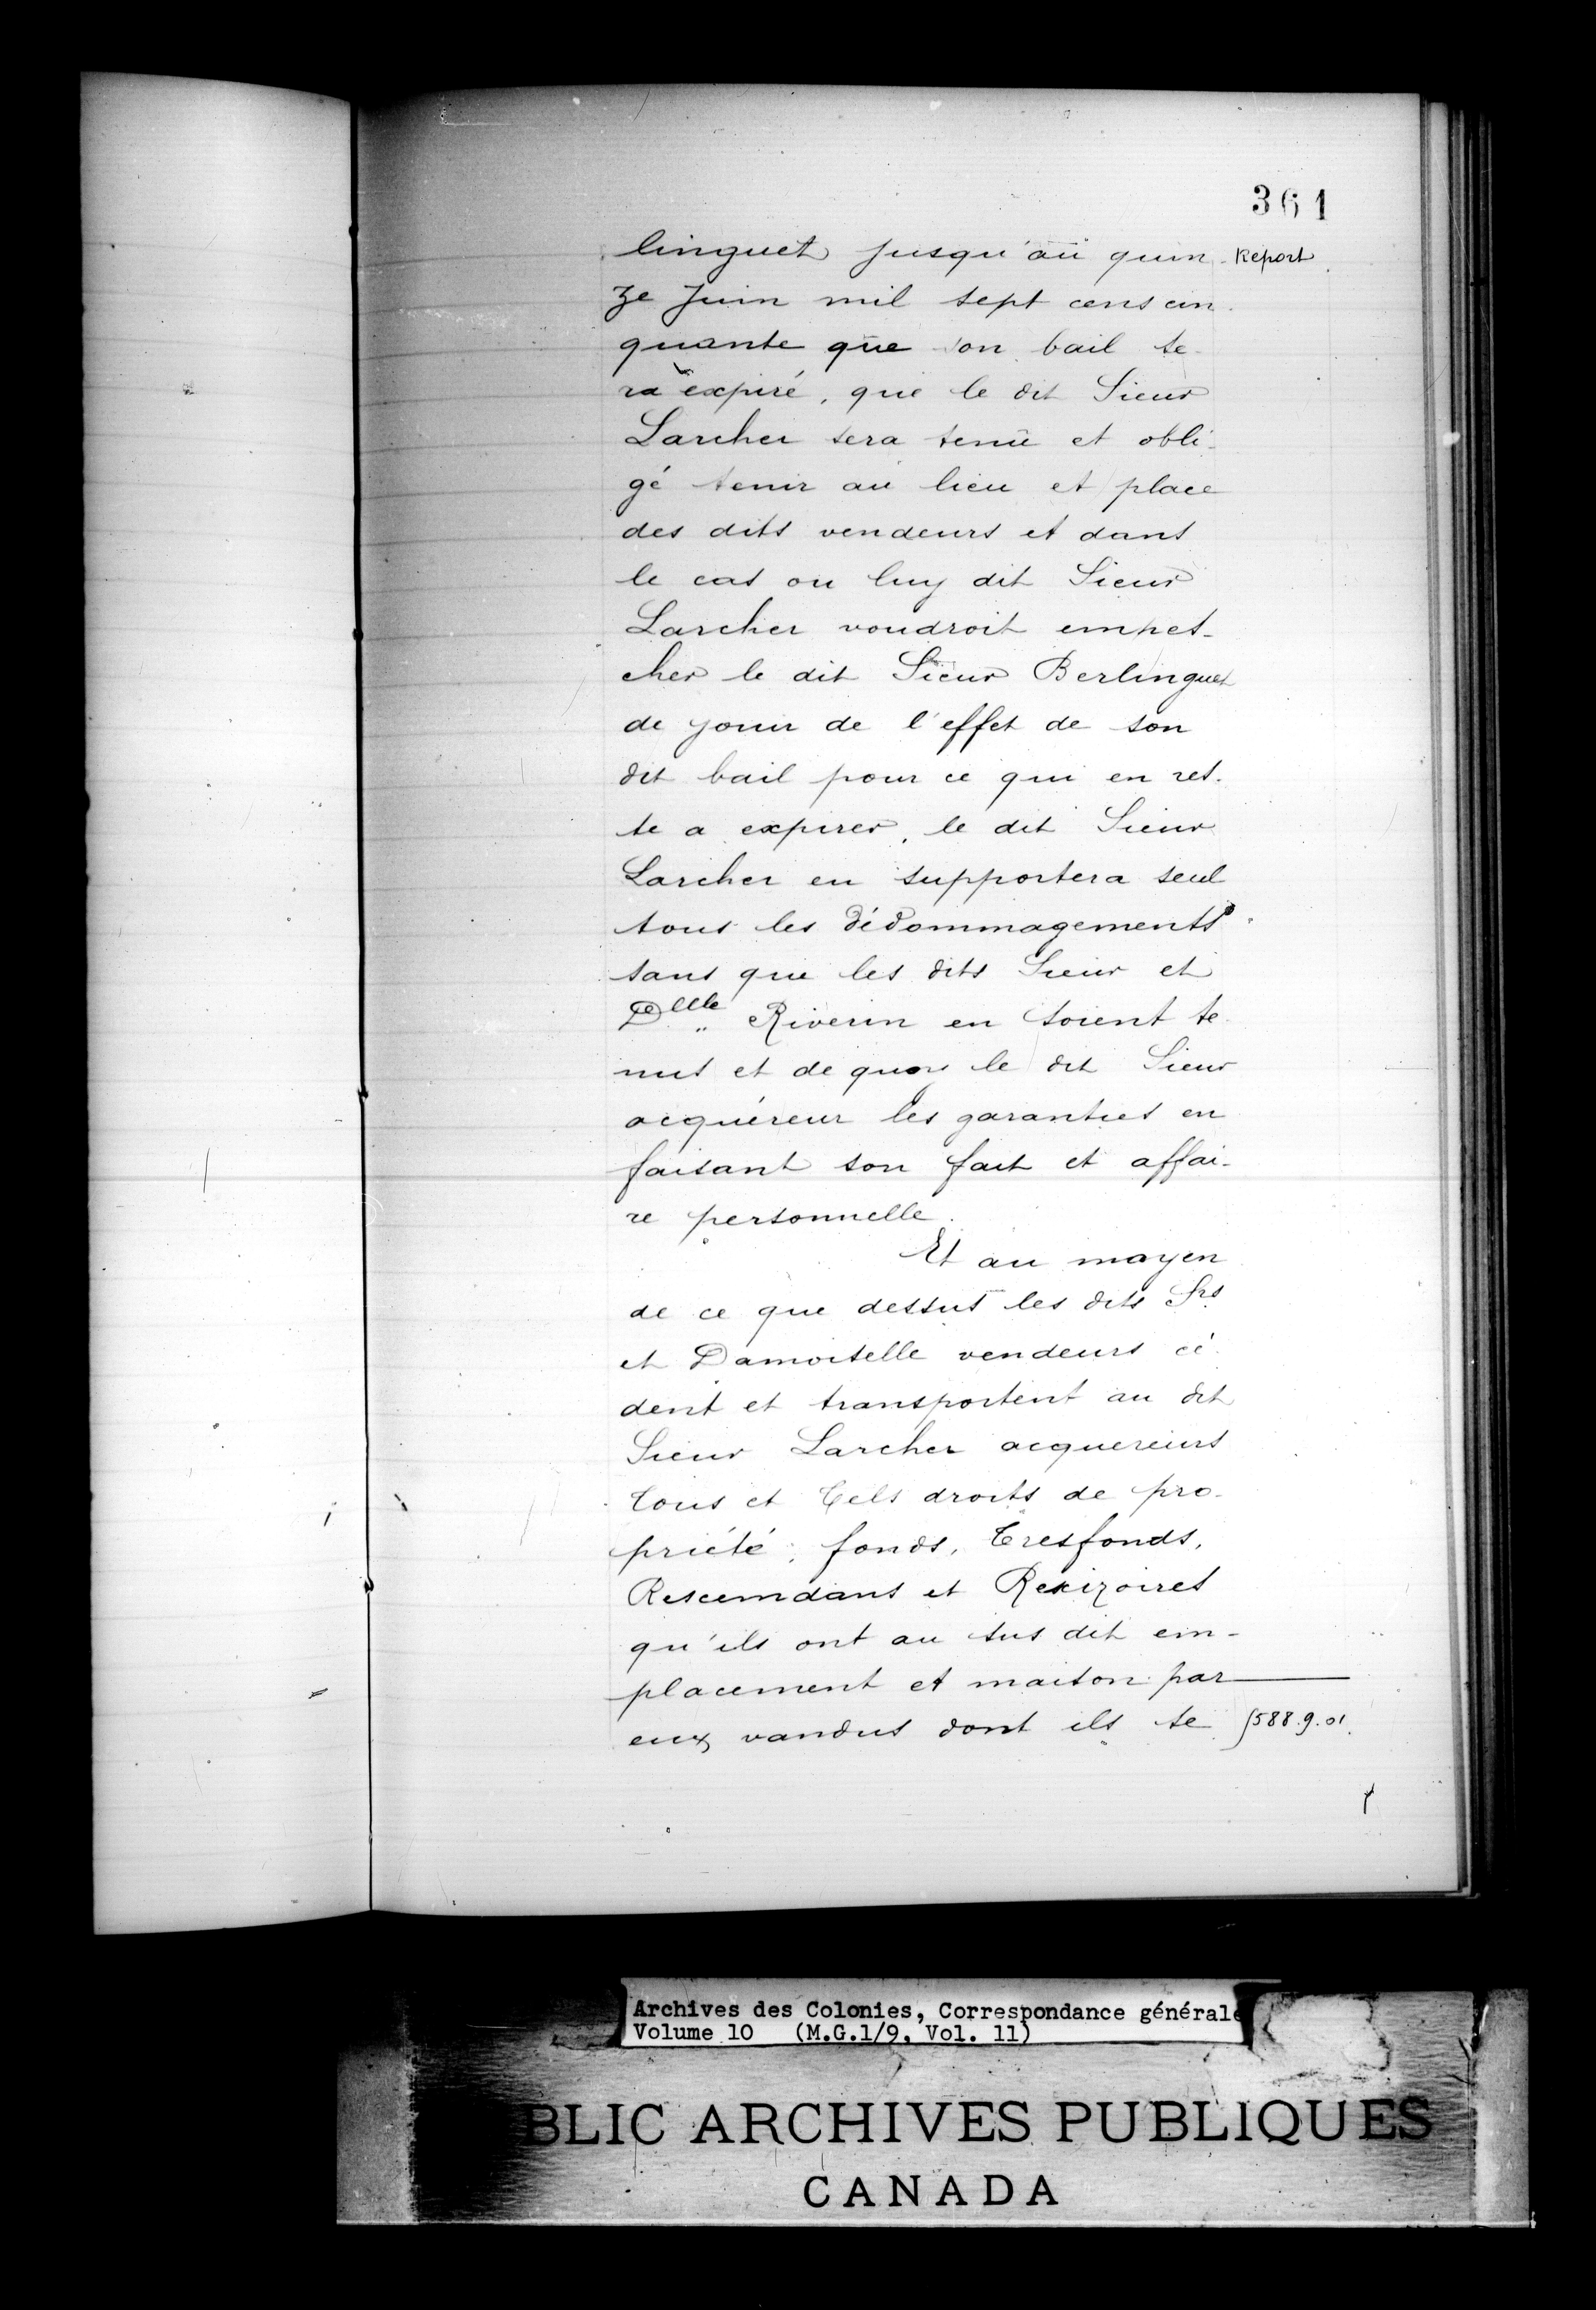 361
linguet jusqu'aü quin- Report
ze Juin mil sept cens cin-
quante que son bail se-
ra expiré, que le dit Sieur
Larcher sera tenü et obli-
gé tenir au lieu et place
des dits vendeurs et dans
le cas ou luy dit Sieur
Larcher voudroit empes-
cher le dit Sieur Berlinguet
de jouir de l'effet de son
dit bail pour ce qui en res-
te a expirer, le dit Sieur
Larcher en supportera seul
tous les dédommagements
sans que les dits Sieur et
Dlle Riverin en soient te-
nus et de quoy le dit Sieur
acquéreur les garanties en
faisant son fait et affai-
re personnelle.
Et au moyen
de ce que dessus les dits Srs
et Damoiselle vendeurs cé-
dent et transportent au dit
Sieur Larcher acquereurs
tous et tels droits de pro-
priété, fonds, tresfonds,
Rescemdans et Rexizoires
qu'ils ont au sus dit em-
placement et maison par
eux vandus dont ils se 588.9.01.
Archives des Colonies, Correspondance générale
Volume 10 (M.G.1/9, Vol. 11)
BLIC ARCHIVES PUBLIQUES
CANADA